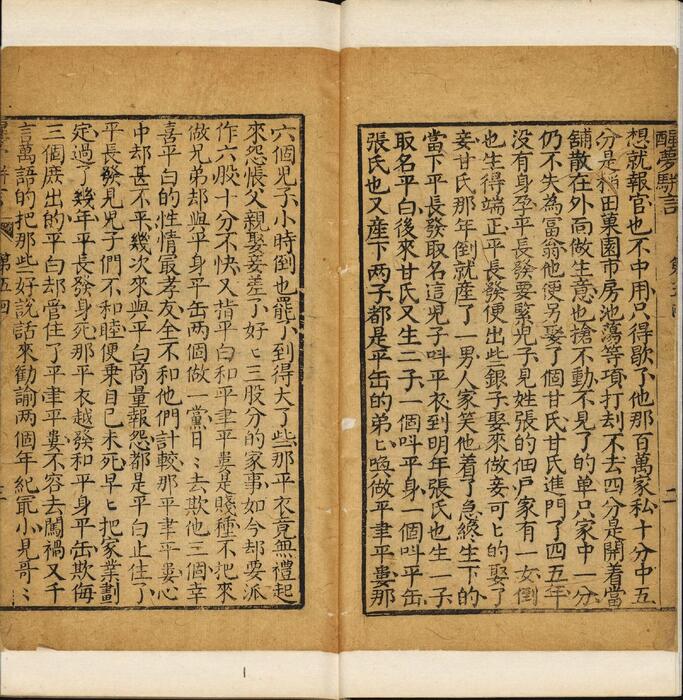 醒夢駢言
第五回
二
想就報官也不中用只得歇了他那百萬家私十分中五
分是稻田菓園市房池蕩等項打刦不去四分是開着當
舖散在外面做生意也搶不動不見了的单只家中一分
仍不失為冨翁他便另娶了個甘氏甘氏進門了四五年
没有身孕平長發要緊兒子見姓張的佃戶家有一女倒
也生得端正平長發便出些銀子娶來做妾可ヒ的娶了
妾甘氏那年倒就產了一男人家笑他着了急終生下的
當下平長發取名這兒子呌平衣到明年張氏也生一子
取名平白後來甘氏又生二子一個呌平身一個呌平缶
張氏也又産下两子都是平缶的弟ヒ喚做平聿平婁那
六個児子小時倒也罷了到得大了些那平衣竟無禮起
來怨悵父親娶妾差了好ヒ三股分的家事如今却要派
作六股十分不快又指平白和平聿平婁是賤種不把來
做兄弟却與平身平缶两個做一黨日ヽ去欺他三個幸
喜平白的性情最孝友全不和他們計較那平聿平婁心
中却甚不平幾次來與平白商量報怨都是平白止住了
平長發見児子們不和睦便乗自己未死早ヒ把家業劃
定過了幾年平長發身死那平衣越發和平身平缶欺侮
三個庶出的平白却管住了平聿平婁不容去闖禍又千
言萬語的把那些好說話來勸諭两個年紀冣小見哥ヽ
第五回